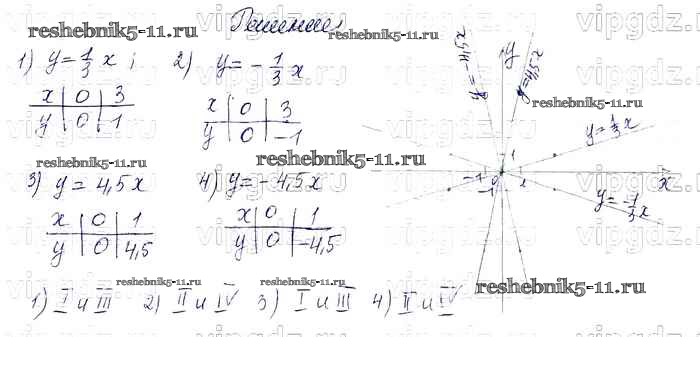 Решение
1) y = 1/3 x ; 2) y = - 1/3 x
x | 0 | 3
y | 0 | 1
x | 0 | 3
y | 0 | -1
3) y = 4,5x 4) y = -4,5x
x | 0 | 1
y | 0 | 4,5
x | 0 | 1
y | 0 | -4,5
1) I и III 2) II и IV 3) I и III 4) II и IV
y
y = -4,5x
y = 4,5x
y = 1/3 x
1
-1 0 1 x
-1
y = -1/3 x
reshebnik5-11.ru
reshebnik5-11.ru
reshebnik5-11.ru
reshebnik5-11.ru
reshebnik5-11.ru
reshebnik5-11.ru
reshebnik5-11.ru
reshebnik5-11.ru
reshebnik5-11.ru
vipgdz.ru